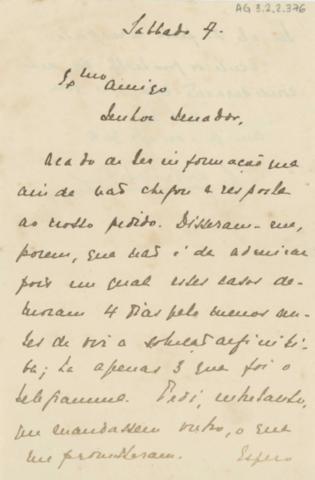 AG 3.2.2.376
Sabbado 7.
Exmo Amigo
Senhor Senador,
Acabo de ter informação que
ainda não chegou a resposta
ao nosso pedido. Disseram-me,
porem, que não é de admirar
pois em geral estes casos de-
moram 4 dias pelo menos an-
tes de vir a solução definiti-
va; ha apenas 3 que foi o
telegramma. Pedi, entretanto,
me mandassem outro, o que
me prometteram. Espero